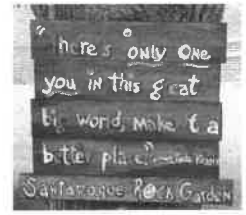 "here's only one
you in this g eat
big world, make t a
better place."
Santarogue Rock Garden